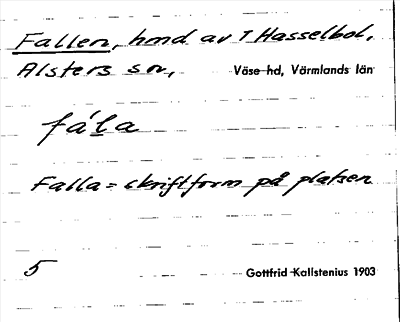 Fallen, hmd av 1 Hasselbol,
Alsters sn, Väse hd, Värmlands län
fála
Falla = skriftform på platsen
5 Gottfrid Kallstenius 1903